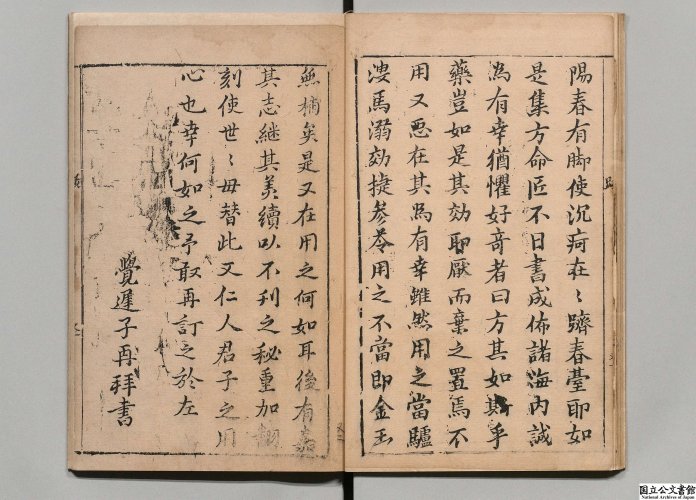 陽春有脚使沉疴在〻躋春臺耶如
是集方命匠不日書成佈諸海内誠
為有幸猶懼好竒者曰方其如斯乎
藥豈如是其効耶厭而棄之置焉不
用又悪在其為有幸雖然用之當驢
溲馬溺効捷參苓用之不當即金玉
無補矣是又在用之何如耳後有
其志継其美續以不刋之秘重加
刻使世〻毋替此又仁人君子之用
心也幸何如之予取再訂之於左
覺遲子再拜書
国立公文書館
National Archives of Japan